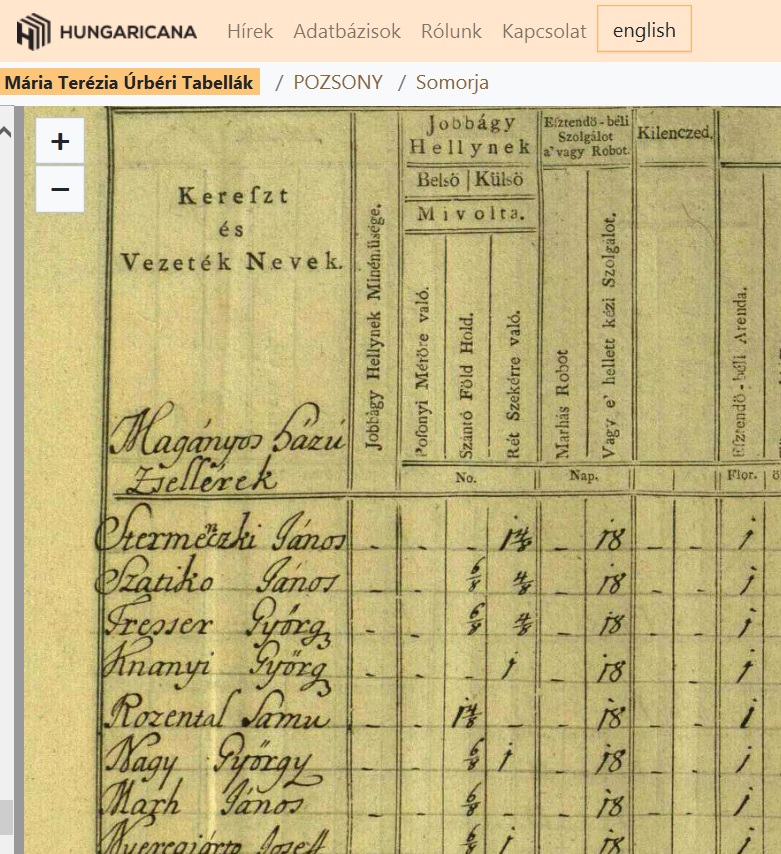 HUNGARICANA Hírek Adatbázisok Rólunk Kapcsolat english
Mária Terézia Úrbéri Tabellák / POZSONY / Somorja
+
−
Kereſzt
és
Vezeték Nevek.
Jobbágy Hellynek Minémüsége.
Jobbágy
Hellynek
Belsö | Külsö
Mivolta.
Poſonyi Méröre való.
Szántó Föld Hold.
Rét Szekérre való.
Eſztendö-béli
Szolgálot
a' vagy Robot.
Marhás Robot
Vagy e' hellett kézi Szolgálot.
Kilenczed.
Eſztendö-béli Arenda.
Magányos házú
Zsellérek
No. Nap. Flor.
János - - - 1 4/8 - 18 - - 1
Szatiko János - - 6/8 4/8 - 18 - - 1
Fresser Györg - - 6/8 4/8 - 18 - - 1
Knanyi Györg - - - 1 - 18 - - 1
Rozental Samu - - 1 4/8 - - 18 - - 1
Nagy György - - 6/8 1 - 18 - - 1
Marh János - - 6/8 - - 18 - - 1
6/8 1 18 1